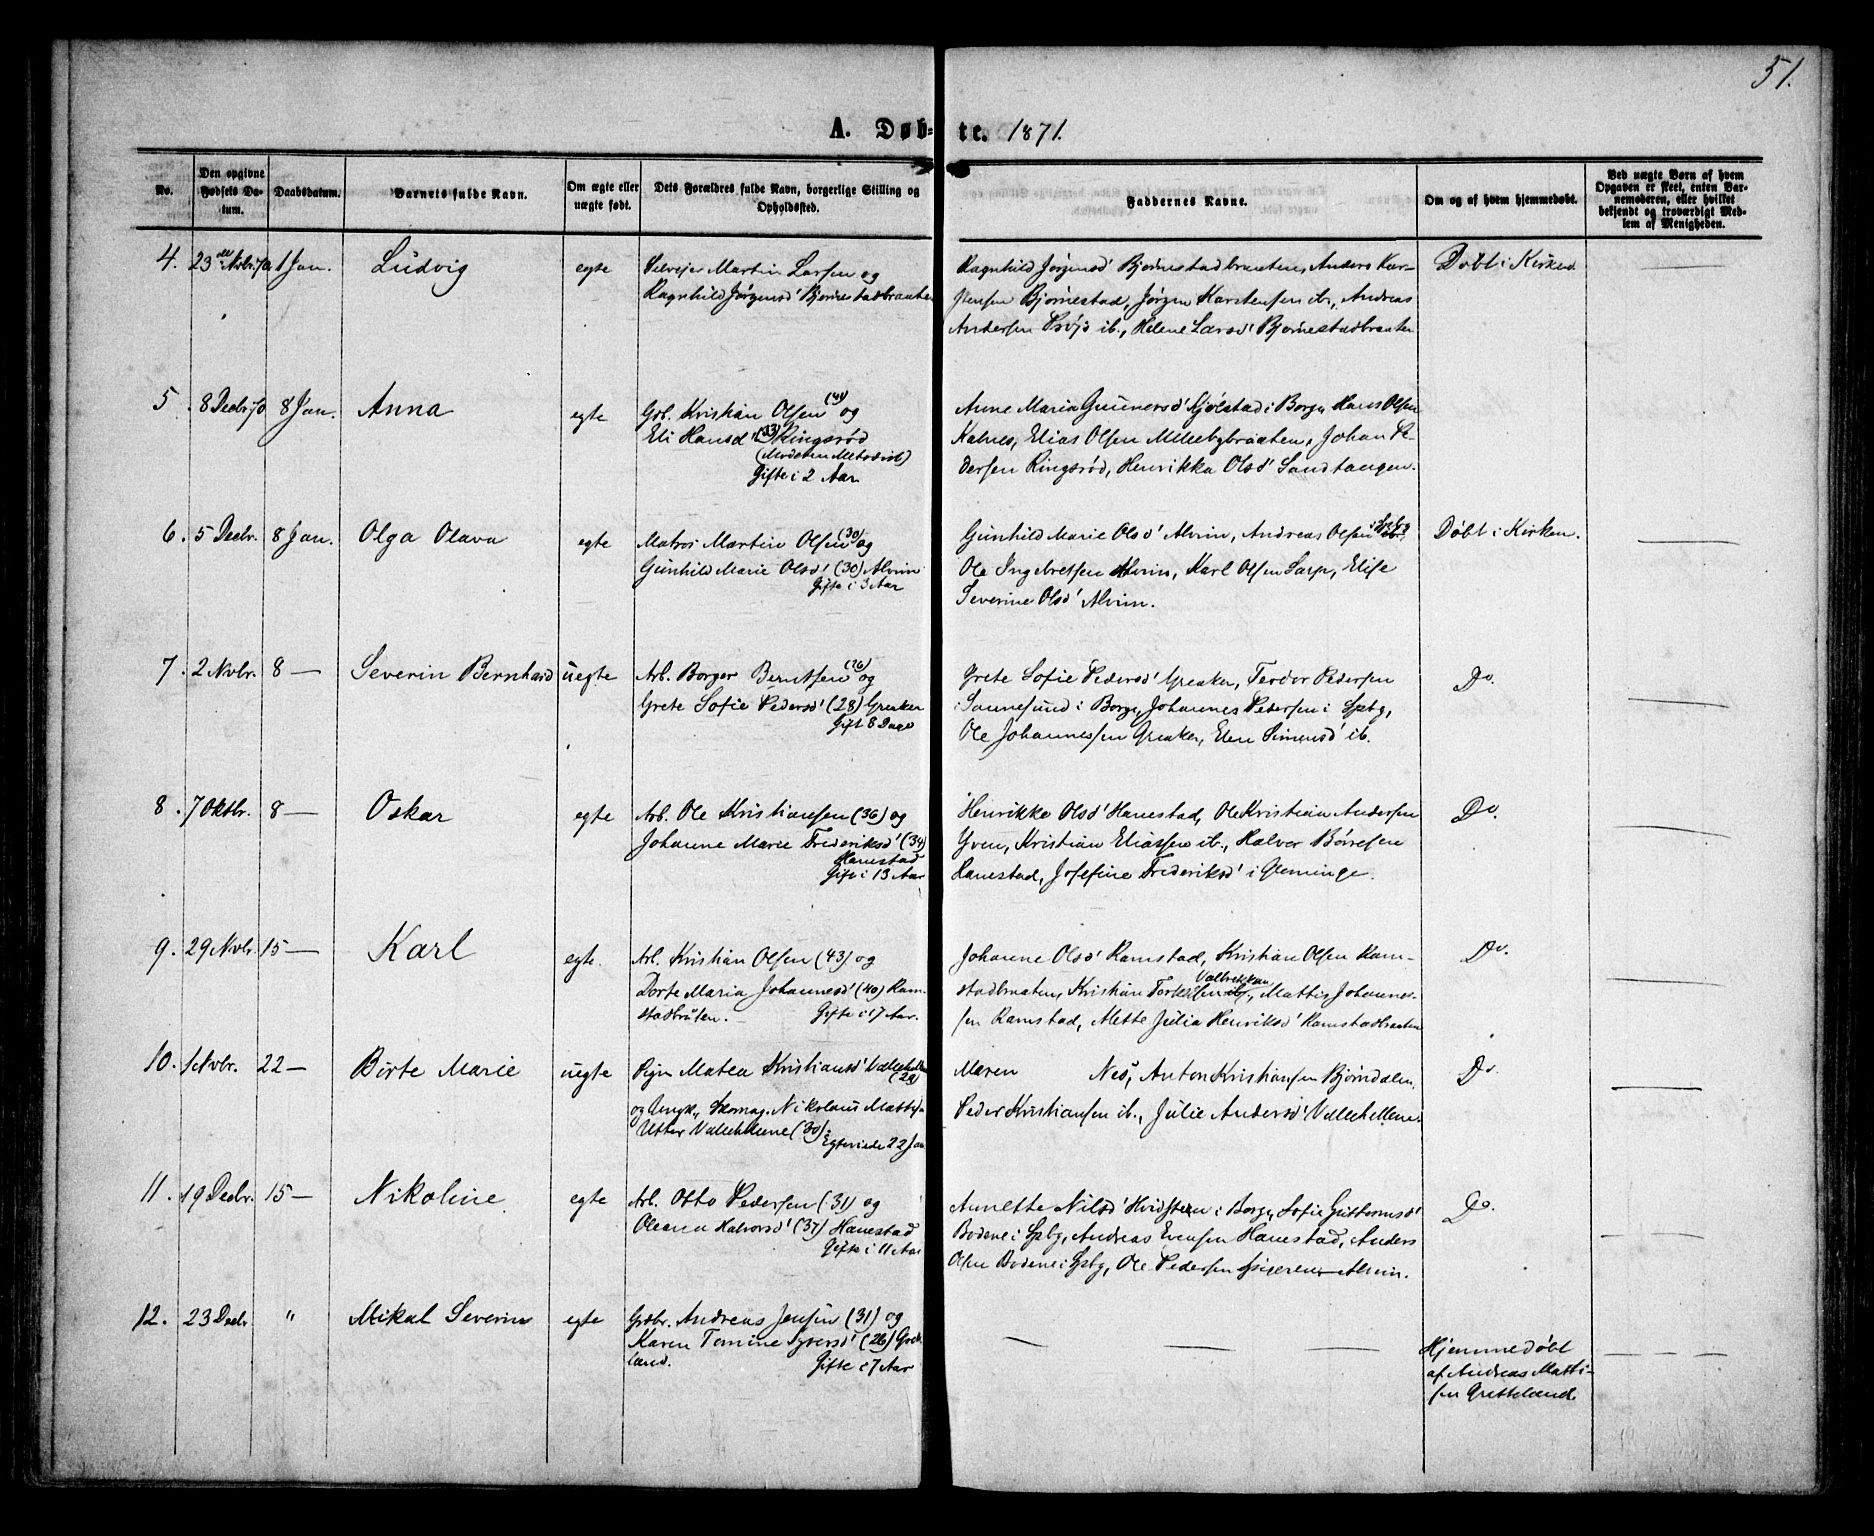 51.
A. Døb- te. 1871.
No.
Den opgivne Fødsels Da- tum.
Daabsdatum.
Barnets fulde Navn.
Om ægte eller uægte født.
Dets Forældres fulde Navn, borgerlige Stilling og Opholdssted.
Faddernes Navne.
Om og af hvem hjemmedøbt.
Ved uægte Børn af hvem Opgaven er skeet, enten Bar- nemoderen, eller hvilket bekjendt og troværdigt Med- lem af Menigheden.
4. 23de Novbr. 70 1 Jan. Ludvig egte Selvejer Martin Larsen og
Ragnhild Jørgensd' Bjørnestadbraaten
Ragnhild Jørgensd' Bjørnestadbraaten, Anders Kar-
stensen Bjørnestad, Jørgen Karstensen ib., Andreas
Andersen ib., Helene Larsd' Bjørnestadbraaten
Døbt i Kirken
5. 8 Decbr 70 8 Jan. Anna egte Gbr. Kristian Olsen (41) og
Eli Hansd' (33) Ringsrød
(Moderen Metodist)
Gifte i 2 Aar
Anne Maria Gunnersd' Kjølstad i Borge, Hans Olsen
Kalnes, Elias Olsen Mellebybraaten, Johan Pe-
dersen Ringsrød, Henrikka Olsd' Sandtangen.
6. 5 Decbr. 8 Jan. Olga Olava egte Matros Martin Olsen (30) og
Gunhild Marie Olsd' (30) Alvim
Gifte i 3 Aar
Gunhild Marie Olsd' Alvim, Andreas Olsen i Spbg
Ole Ingebretsen Alvim, Karl Olsen Sarp, Elise
Severine Olsd' Alvim.
Døbt i Kirken.
7. 2 Novbr. 8 — Severin Bernhard uegte Arb. Borger Berntsen (26) og
Grete Sofie Pedersd' (28) Greaker
Gift 8 Dage
Grete Sofie Pedersd' Greaker, Teodor Pedersen
i Sannesund i Borge, Johannes Pedersen i Spbg,
Ole Johannessen Greaker, Elen Simensd' ib.
Do.
8. 7 Oktbr. 8 — Oskar egte Arb. Ole Kristiansen (36) og
Johanne Marie Frederiksd' (34)
Hanestad
Gifte i 13 Aar
Henrikke Olsd' Hanestad, Ole Kristian Andersen
Yven, Kristian Eliassen ib., Halvor Børresen
Hanestad, Josefine Frederiksd' i Glemminge.
Do.
9. 29 Novbr. 15 — Karl egte. Arb. Kristian Olsen (43) og
Dorte Maria Johannesd' (40) Ram-
stadbråten. Gifte i 17 Aar.
Johanne Olsd' Ramstad, Kristian Olsen Ram-
stadbraaten, Kristian Torkilsen Valbrekken, Mattis Johannes-
sen Ramstad, Mette Julia Henriksd' Ramstadbraaten
Do.
10. 1 Novbr. 22 — Birte Marie uegte Pigen Matea Kristiansd' Vallehellene
(29)
og Ungk., Skomag. Nikolaus Mattisen
Utter Vallehellene (30). Egteviede 22 Jan
Maren Nes, Anton Kristiansen Bjørndalen,
Peder Kristiansen ib., Julie Andersd' Vallehellene.
Do.
11. 19 Decbr. 15 — Nikoline egte Arb. Otto Pedersen (31) og
Oleana Halvorsd' (37) Hanestad
Gifte i 11 Aar
Annette Nilsd' Hvidsten i Borge, Sofie Guttormsd'
Bodene i Spbg, Andreas Evensen Hanestad, Anders
Olsen Bodene i Spbg, Ole Pedersen Alvim.
Do.
12. 23 Decbr " Mikal Severin egte Grdbr. Andreas Jensen (31) og
Karen Tomine Syversd' (26) Gret-
land. Gifte i 7 Aar
Hjemmedøbt
af Andreas Matti-
sen Gretteland.